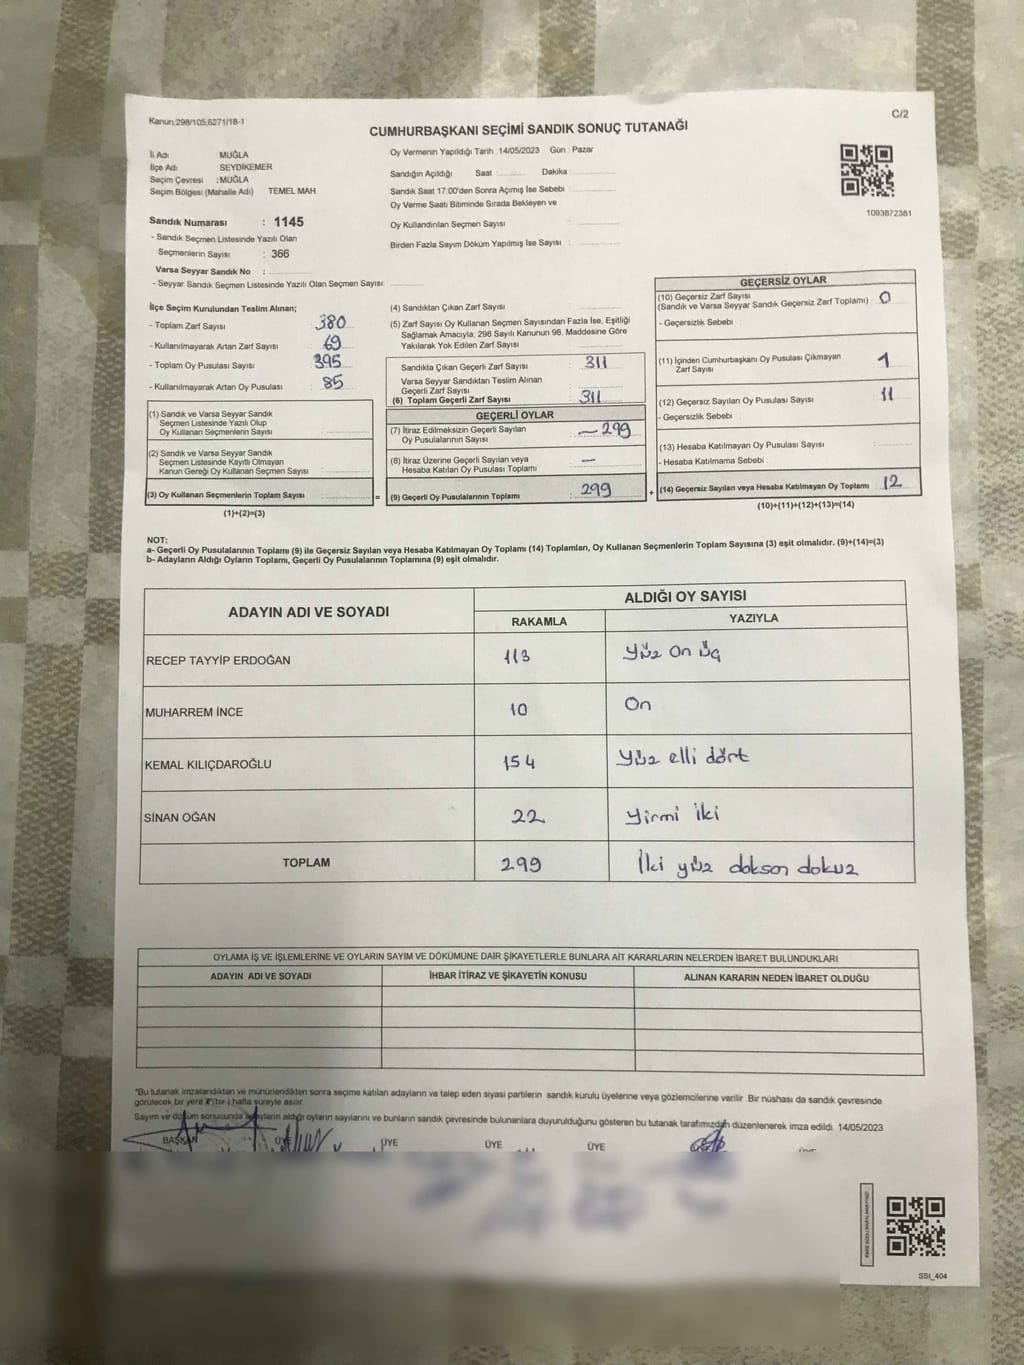 Kanun,298/105,6271/18-1
C/2
CUMHURBAŞKANI SEÇİMİ SANDIK SONUÇ TUTANAĞI
İl Adı MUĞLA
İlçe Adı SEYDİKEMER
Seçim Çevresi : MUĞLA
Seçim Bölgesi (Mahalle Adı) TEMEL MAH.
Sandık Numarası : 1145
- Sandık Seçmen Listesinde Yazılı Olan
Seçmenlerin Sayısı : 366
Varsa Seyyar Sandık No :
- Seyyar Sandık Seçmen Listesinde Yazılı Olan Seçmen Sayısı:
Oy Vermenin Yapıldığı Tarih : 14/05/2023 Gün : Pazar
Sandığın Açıldığı Saat Dakika
Sandık Saat 17:00'den Sonra Açımış İse Sebebi
Oy Verme Saati Bitiminde Sırada Bekleyen ve
Oy Kullandırılan Seçmen Sayısı :
Birden Fazla Sayım Döküm Yapılmış İse Sayısı :
1093872381
İlçe Seçim Kurulundan Teslim Alınan;
- Toplam Zarf Sayısı 380
- Kullanılmayarak Artan Zarf Sayısı 69
- Toplam Oy Pusulası Sayısı 395
- Kullanılmayarak Artan Oy Pusulası 85
(1) Sandık ve Varsa Seyyar Sandık
Seçmen Listesinde Yazılı Olup
Oy Kullanan Seçmenlerin Sayısı
(2) Sandık ve Varsa Seyyar Sandık
Seçmen Listesinde Kayıtlı Olmayan
Kanun Gereği Oy Kullanan Seçmen Sayısı
(3) Oy Kullanan Seçmenlerin Toplam Sayısı :
(1)+(2)=(3)
=
(4) Sandıktan Çıkan Zarf Sayısı :
(5) Zarf Sayısı Oy Kullanan Seçmen Sayısından Fazla İse, Eşitliği
Sağlamak Amacıyla; 298 Sayılı Kanunun 98. Maddesine Göre
Yakılarak Yok Edilen Zarf Sayısı :
Sandıkta Çıkan Geçerli Zarf Sayısı : 311
Varsa Seyyar Sandıktan Teslim Alınan
Geçerli Zarf Sayısı
(6) Toplam Geçerli Zarf Sayısı : 311
GEÇERLİ OYLAR
(7) İtiraz Edilmeksizin Geçerli Sayılan
Oy Pusulalarının Sayısı : – 299
(8) İtiraz Üzerine Geçerli Sayılan veya
Hesaba Katılan Oy Pusulası Toplamı –
(9) Geçerli Oy Pusulalarının Toplamı : 299
+
GEÇERSİZ OYLAR
(10) Geçersiz Zarf Sayısı
(Sandık ve Varsa Seyyar Sandık Geçersiz Zarf Toplamı) : 0
- Geçersizlik Sebebi :
(11) İçinden Cumhurbaşkanı Oy Pusulası Çıkmayan
Zarf Sayısı 1
(12) Geçersiz Sayılan Oy Pusulası Sayısı 11
- Geçersizlik Sebebi :
(13) Hesaba Katılmayan Oy Pusulası Sayısı :
- Hesaba Katılmama Sebebi :
(14) Geçersiz Sayılan veya Hesaba Katılmayan Oy Toplamı : 12
(10)+(11)+(12)+(13)=(14)
NOT:
a- Geçerli Oy Pusulalarının Toplamı (9) ile Geçersiz Sayılan veya Hesaba Katılmayan Oy Toplamı (14) Toplamları, Oy Kullanan Seçmenlerin Toplam Sayısına (3) eşit olmalıdır. (9)+(14)=(3)
b- Adayların Aldığı Oyların Toplamı, Geçerli Oy Pusulalarının Toplamına (9) eşit olmalıdır.
ADAYIN ADI VE SOYADI ALDIĞI OY SAYISI
RAKAMLA YAZIYLA
RECEP TAYYİP ERDOĞAN 113 Yüz on üç
MUHARREM İNCE 10 On
KEMAL KILIÇDAROĞLU 154 Yüz elli dört
SİNAN OĞAN 22 Yirmi iki
TOPLAM 299 İki yüz doksan dokuz
OYLAMA İŞ VE İŞLEMLERİNE VE OYLARIN SAYIM VE DÖKÜMÜNE DAİR ŞİKAYETLERLE BUNLARA AİT KARARLARIN NELERDEN İBARET BULUNDUKLARI
ADAYIN ADI VE SOYADI İHBAR İTİRAZ VE ŞİKAYETİN KONUSU ALINAN KARARIN NEDEN İBARET OLDUĞU
"Bu tutanak imzalandıktan ve mühürlendikten sonra seçime katılan adayların ve talep eden siyasi partilerin sandık kurulu üyelerine veya gözlemcilerine verilir. Bir nüshası da sandık çevresinde
görülecek bir yere 1(bir) hafta süreyle asılır.
Sayım ve döküm sonucunda adayların aldığı oyların sayılarını ve bunların sandık çevresinde bulunanlara duyurulduğunu gösteren bu tutanak tarafımızdan düzenlenerek imza edildi. 14/05/2023
BAŞKAN ÜYE ÜYE ÜYE ÜYE
SSI_404